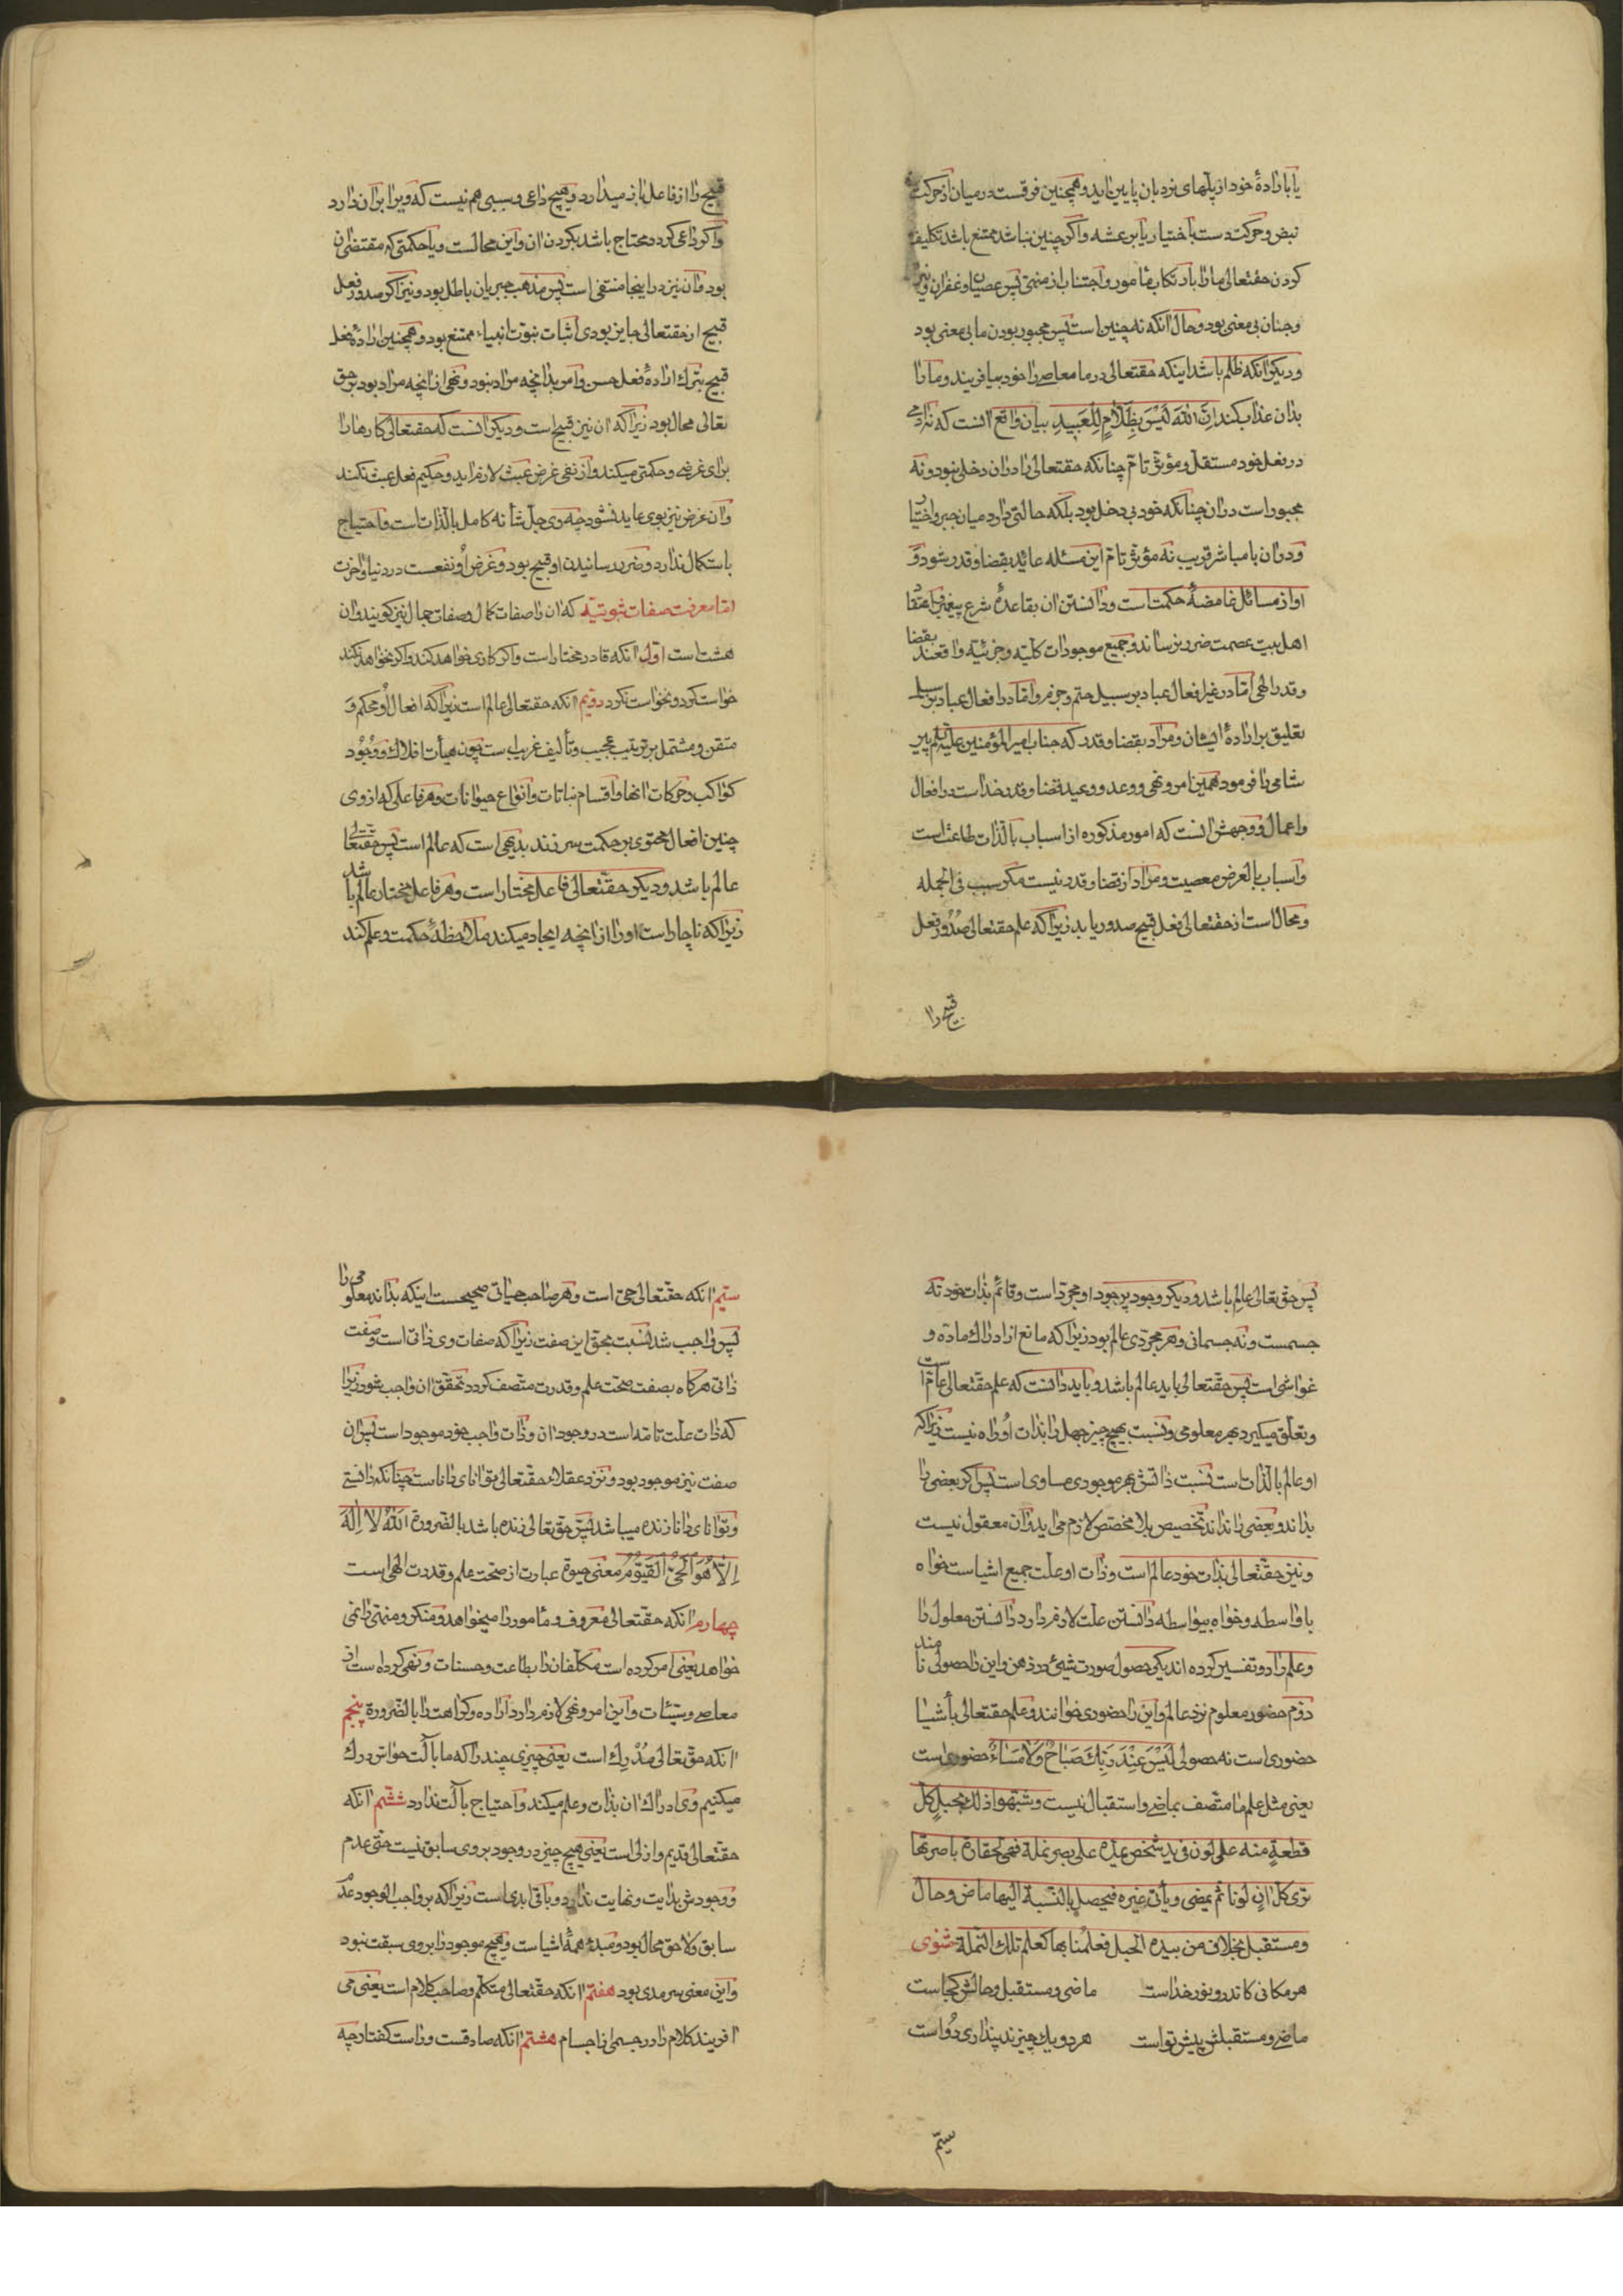 یا باراده خود از پلهای نردبان پایین اید و همچنین فرقست در میان از حرکت
نبض و حرکت دست باختیار یا برعشه و اگر چنین نباشد ممتنع باشد تکلیف
کردن حقتعالی ما را بارتکاب مامور و اجتناب از منهی پس عصیان و غفران و نیران
و جنان بی معنی بود و حال آنکه نه چنین است پس مجبور بودن ما بی معنی بود
و دیکر آنکه ظلم باشد اینکه حقتعالی در ما معاصی را خود بیافریند و ما را
بدان عذاب بکند اِنَّ اللّٰهَ لَیْسَ بِظَلَّامٍ لِلْعَبِیدِ بیان واقع آنست که نه ادمی
در فعل خود مستقل و مؤثر تام چنانکه حقتعالی را دران دخلی نبود و نه
مجبور است دران چنانکه خود بی دخل بود بلکه حالتی دارد میان جبر و اختیار
و دران با مباشر قریب نه مؤثر تام این مسئله عاید بقضا و قدر شود و
او از مسائل غامضهٔ حکمت است و دانستن ان بقاعدهٔ شرع پیغمبر و اعتقاد
اهل بیت عصمت ضرر نرساند و جمیع موجودات کلیه و جزئیه واقعند بقضا
و قدر الهی اما در غیر افعال عباد بر سبیل حتم و جزم و اما در افعال عباد بر سبیل
تعلیق بر ارادهٔ ایشان و مراد بقضا و قدر که جناب امیر المؤمنین علیه السلام پیر
شامی را فرمود همین امر و نهی و وعد و وعید قضا و قدر خداست در افعال
و اعمال و وجهش آنست که امور مذکوره از اسباب بالذات طاعتست
و اسباب بالعرض معصیت و مراد از قضا و قدر نیست مکر سبب فی الجمله
و محال است از حقتعالی فعل قبیح صدور یابد زیرا که علم حقتعالی صدور فعل
قبیح را
قبیح را از فاعل باز میدارد و هیچ داعی و سببی هم نیست که ویرا بران دارد
و اکر داعی کردد محتاج باشد بکردن ان و این محالست و یا حکمتی که مقتضی ان
بود و ان نیز در اینجا منتفی است پس مذهب جبریان باطل بود و نیز اکر صدور فعل
قبیح از حقتعالی جایز بودی اثبات نبوت انبیاء ممتنع بود و همچنین ارادهٔ فعل
قبیح بترک ارادهٔ فعل حسن و امر بدانچه مراد نبود و نهی از انچه مراد بود بر حق
تعالی محال بود زیرا که ان نیز قبیح است و دیکر آنست که حقتعالی کارها را
برای غرضی و حکمتی میکند و از نفی غرض عبث لازم اید و حکیم فعل عبث نکند
و ان غرض نیز بوی عاید نشود چه وی جل شأنه کامل بالذات است و احتیاج
باستکمال ندارد و ضرر رسانیدن او قبیح بود و غرض او نفعست در دنیا و اخرت
اما معرفت صفات ثبوتیه که ان را صفات کمال و صفات جمال نیز کویند و ان
هشت است اول آنکه قادر مختار است و اکر کاری خواهد کند و اکر نخواهد نکند
خواست کرد و نخواست نکرد دویم آنکه حقتعالی عالم است زیرا که افعال او محکم و
متقن و مشتمل بر ترتیب عجیب و تألیف غریب است چون هیأت افلاک و وجود
کواکب و حرکات آنها و اقسام نباتات و انواع حیوانات و هر فاعلی که از وی
چنین افعال محتوی بر حکمت سر زند بدیهی است که عالم است پس حقتعالی
عالم باشد و دیکر حقتعالی فاعل مختار است و هر فاعل مختار عالم باشد
زیرا که ناچار است او را از انچه ایجاد میکند ملاحظهٔ حکمت و علم کند
پس حق تعالی عالم باشد و دیکر وجود پر جود او مجرد است و قائم بذات خود نه
جسمست و نه جسمانی و هر مجردی عالم بود زیرا که مانع از ادراک ماده و
غواشی است پس حقتعالی باید عالم باشد و باید دانست که علم حقتعالی عام است
و تعلق میکیرد بهر معلومی و نسبت بهیچ چیز جهل را بذات او راه نیست زیرا که
او عالم بالذات است نسبت ذاتش بهر موجودی مساوی است پس اکر بعضی را
بداند و بعضی را نداند تخصیص بلا مخصص لازم می اید و ان معقول نیست
و نیز حقتعالی بذات خود عالم است و ذات او علت جمیع اشیاست خواه
با واسطه و خواه بیواسطه دانستن علت لازم دارد دانستن معلول را
و علم را دو تفسیر کرده اند یکی حصول صورت شیئ در ذهن و این را حصولی نامند
دوم حضور معلوم نزد عالم و این را حضوری خوانند و علم حقتعالی بأشیا
حضوری است نه حصولی لَیْسَ عِنْدَ رَبِّکَ صَبَاحٌ وَلَا مَسَاءٌ حضوری است
یعنی مثل علم ما متصف بماضی و استقبال نیست و شبّهوا ذلک بحبل کل
قطعة منه علی لون فی ید شخص یمرّه علی بصر نملة فهی لحقارة باصرتها
تری کل ان لونا ثم یمضی و یأتی غیره فیحصل بالنسبة الیها ماض و حال
و مستقبل بخلاف من بیده الحبل فعلمنا بها کعلم تلک النملة مثنوی
هر مکانی کاندرو نور خداست ماضی و مستقبل و حالش کجاست
ماضی و مستقبلش پیش تو است هر دو یک چیزند پنداری دو است
سیّم
سیّم آنکه حقتعالی حی است و هر صاحب حیاتی صحیحست اینکه بداند معلومی را
پس واجب شد نسبت بحق این صفت زیرا که صفات وی ذاتی است و صفت
ذاتی هرکاه بصفت صحت علم و قدرت متصف کردد تحقق ان واجب شود زیرا
که ذات علت تامه است در وجود ان و ذات واجب خود موجود است پس ان
صفت نیز موجود بود و نزد عقلا حقتعالی توانای داناست چنانکه دانستی
و توانای دانا زنده میباشد پس حق تعالی زنده باشد بالضرورة اَللّٰهُ لَا اِلٰهَ
اِلَّا هُوَ الْحَیُّ الْقَیُّومُ معنی حیوة عبارت از صحت علم و قدرت الهی است
چهارم آنکه حقتعالی معروف و مامور را میخواهد و منکر و منهی را نمی
خواهد یعنی امر کرده است مکلفان را بطاعت و حسنات و نهی کرده است از
معاصی و سیئات و این امر و نهی لازم دارد اراده و کراهت را بالضرورة پنجم
آنکه حق تعالی مُدْرِک است یعنی چیزی چند را که ما بآلت حواس درک
میکنیم وی ادراک ان بذات و علم میکند و احتیاج بآلت ندارد ششم آنکه
حقتعالی قدیم و ازلی است یعنی هیچ چیز در وجود بر وی سابق نیست حتی عدم
و وجودش بدایت و نهایت ندارد و باقی ابدی است زیرا که بر واجب الوجود عدم
سابق و لاحق محال بود و مبدء همهٔ اشیاست و هیچ موجود را بر وی سبقت نبود
و این معنی سرمدی بود هفتم آنکه حقتعالی متکلم و صاحب کلام است یعنی می
آفریند کلام را در جسمی از اجسام هشتم آنکه صادقست و راست کفتار چه